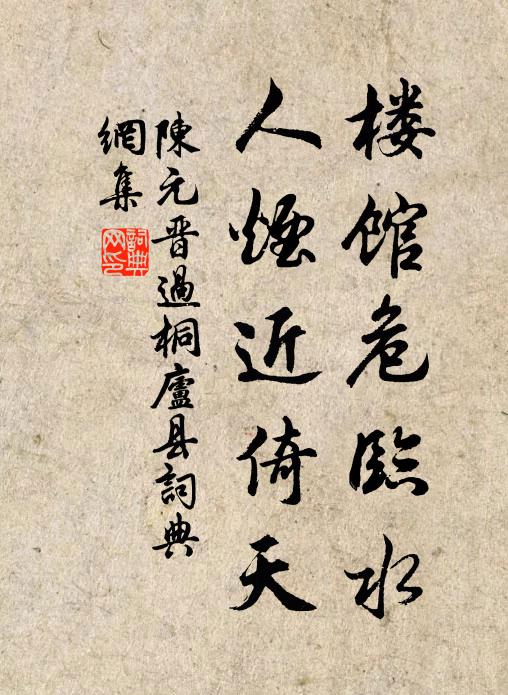 楼馆危臨水
人煙近倚天
陳元晋過桐廬县詞典
網集
詞典網印